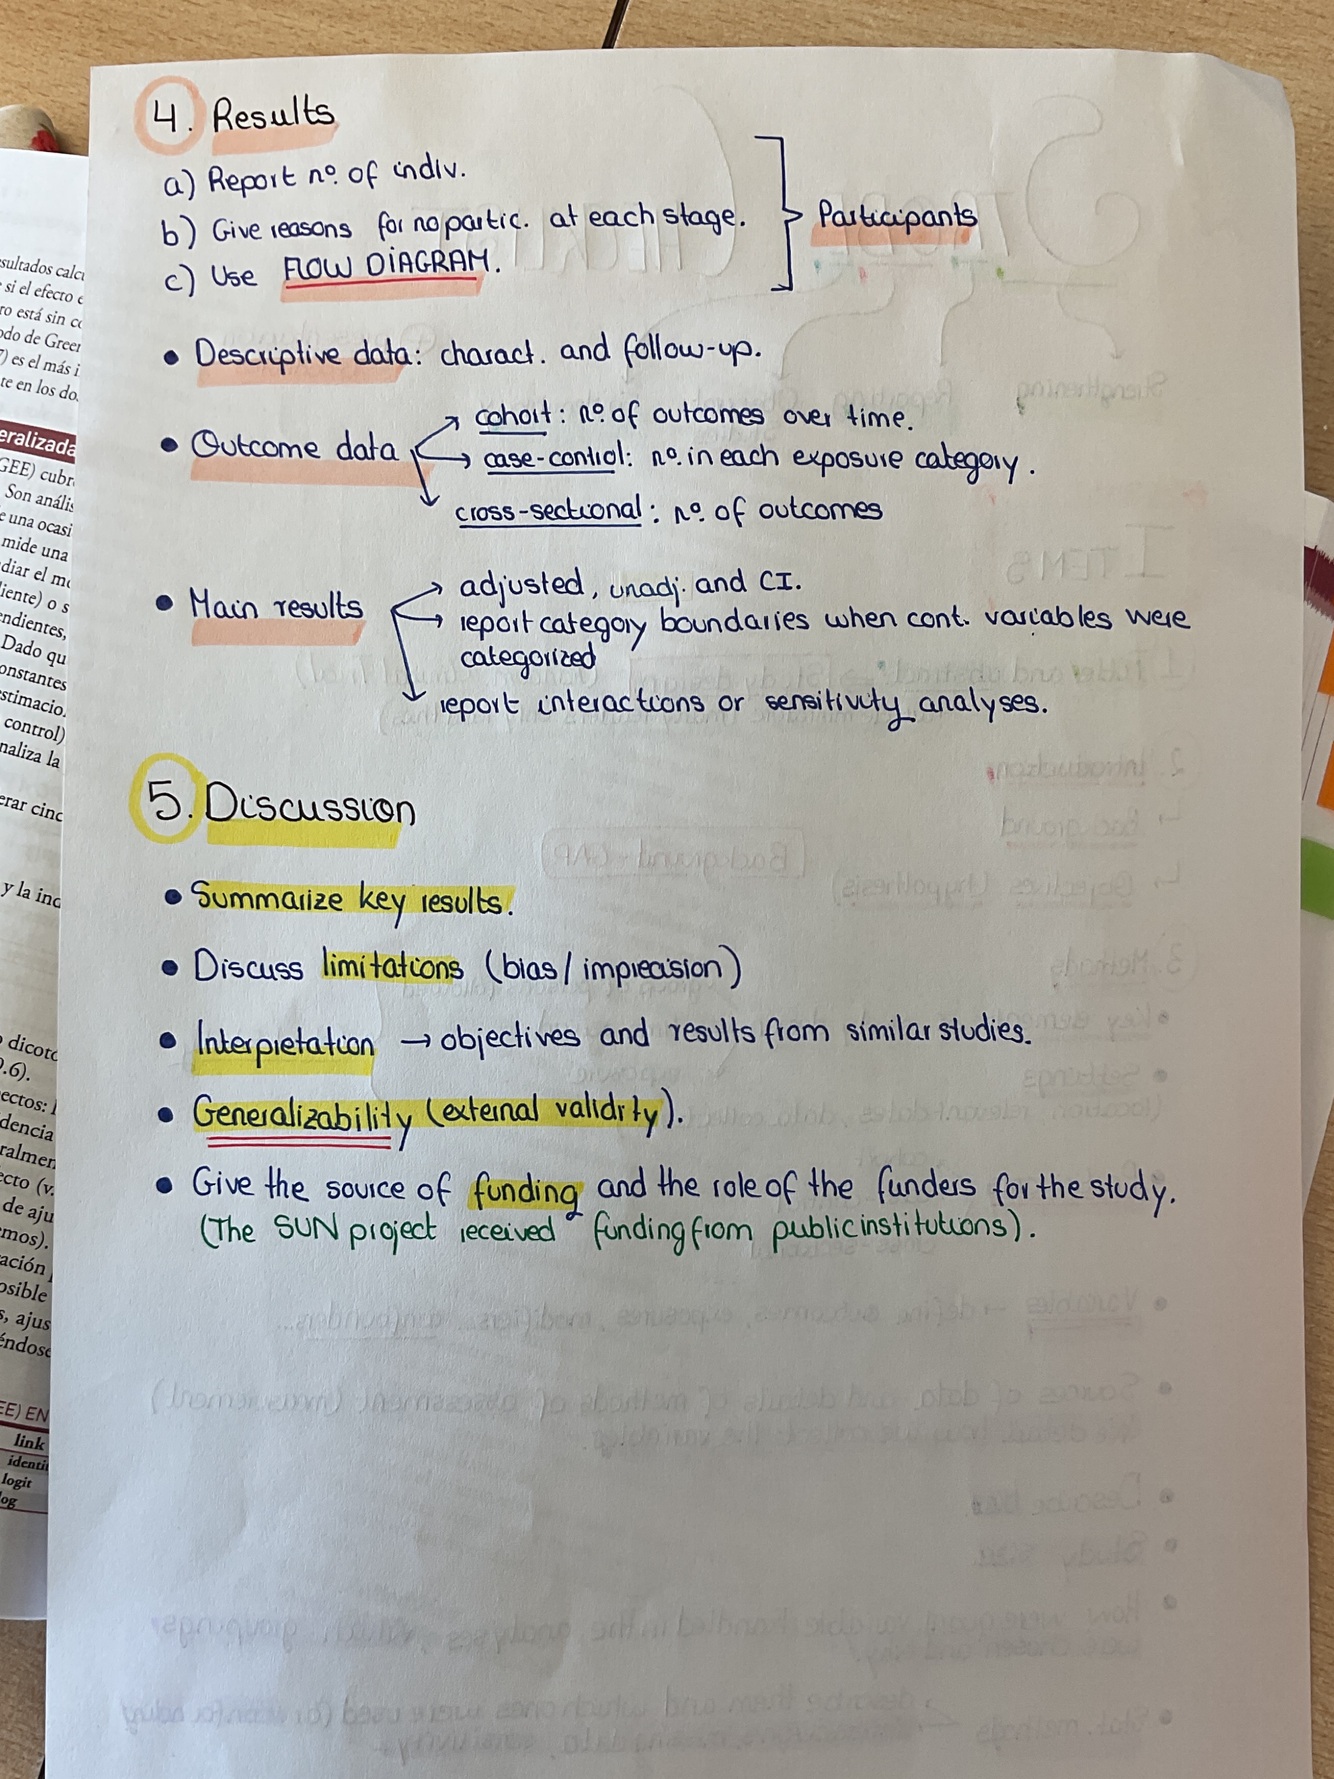 4. Results
a) Report nº. of indiv.
b) Give reasons for no partic. at each stage.
c) Use FLOW DIAGRAM.
Participants
• Descriptive data: charact. and follow-up.
• Outcome data
cohort: nº. of outcomes over time.
case-control: nº. in each exposure category.
cross-sectional: nº. of outcomes
• Main results
adjusted, unadj. and CI.
report category boundaries when cont. variables were
categorized
report interactions or sensitivity analyses.
5. Discussion
• Summarize key results.
• Discuss limitations (bias/imprecision)
• Interpretation → objectives and results from similar studies.
• Generalizability (external validity).
• Give the source of funding and the role of the funders for the study.
(The SUN project received funding from public institutions).
sultados calcu
si el efecto
ro está sin
odo de Green
es el más
te en los do
eralizada
GEE) cubr
Son anális
e una ocasi
mide una
diar el
iente) o s
endientes,
Dado qu
onstantes
stimacio
control)
naliza la
erar cinc
y la inc
dicoto
.6).
ectos:
dencia
ralmen
ecto (v.
de aju
mos).
ación
osible
s, ajus
éndose
EE) EN
link
identi
logit
log